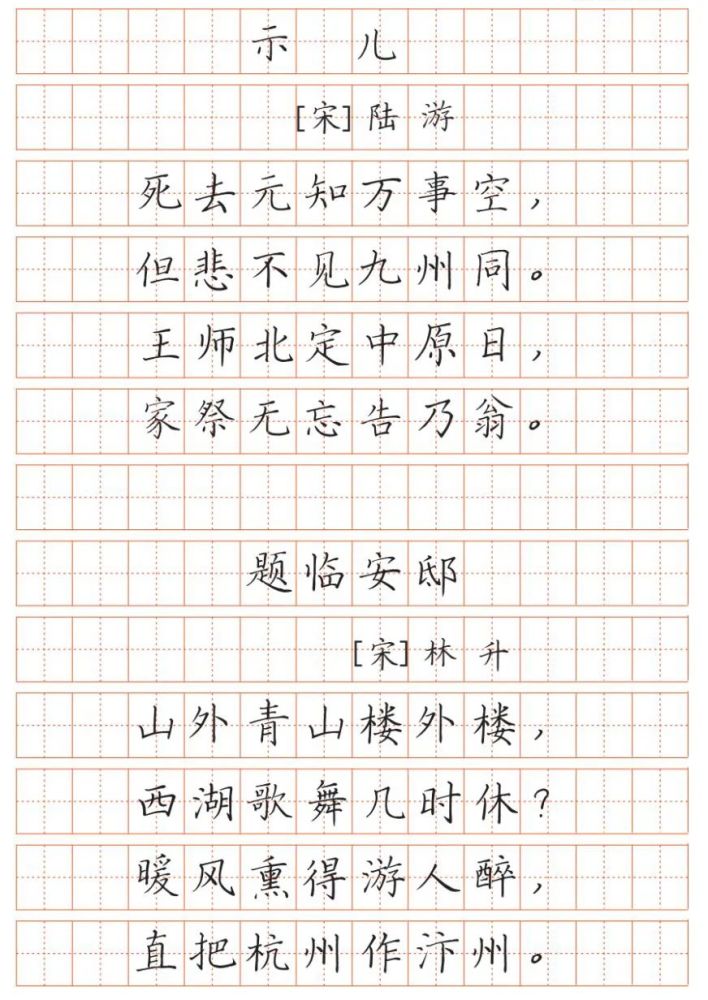 示 儿
[宋] 陆 游
死去元知万事空，
但悲不见九州同。
王师北定中原日，
家祭无忘告乃翁。
题临安邸
[宋] 林 升
山外青山楼外楼，
西湖歌舞几时休？
暖风熏得游人醉，
直把杭州作汴州。